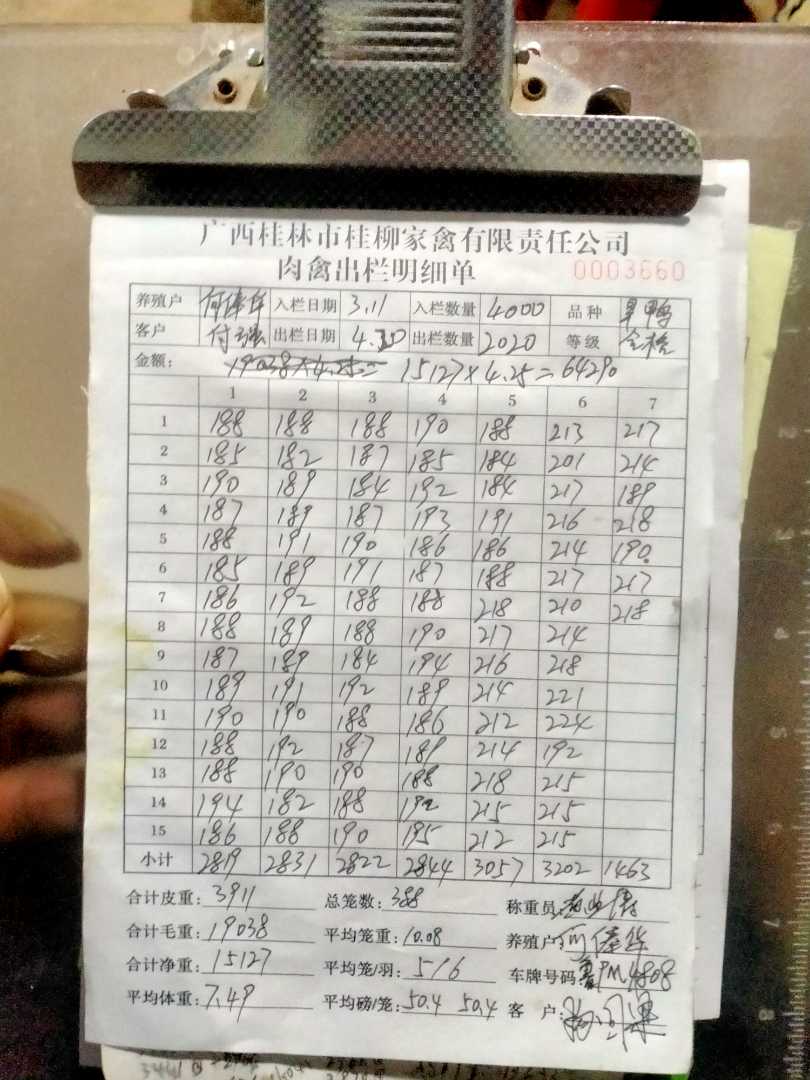 广西桂林市桂柳家禽有限责任公司
肉禽出栏明细单 0003660
养殖户 入栏日期 3.11 入栏数量 4000 品种 鸭
客户 付强 出栏日期 4.20 出栏数量 2020 等级 合格
金额: 19038×4.25= 15127×4.25=64290
1 2 3 4 5 6 7
1 188 188 188 190 188 213 217
2 185 182 187 185 184 201 214
3 190 189 184 192 184 217 189
4 187 189 187 193 191 216 218
5 188 191 190 186 186 214 190
6 185 189 191 187 188 217 217
7 186 192 188 188 218 210 218
8 188 189 188 190 217 214
9 187 189 184 194 216 218
10 189 191 192 189 214 221
11 190 190 188 186 212 224
12 188 192 187 189 214 192
13 188 190 190 188 218 215
14 194 182 188 192 215 215
15 186 188 190 195 212 215
小计 2819 2831 2822 2844 3057 3202 1463
合计皮重: 3911 总笼数: 388 称重员:
合计毛重: 19038 平均笼重: 10.08 养殖户:
合计净重: 15127 平均笼/羽: 5/6 车牌号码: 鲁PM4808
平均体重: 7.49 平均磅/笼: 50.4 50.4 客 户: